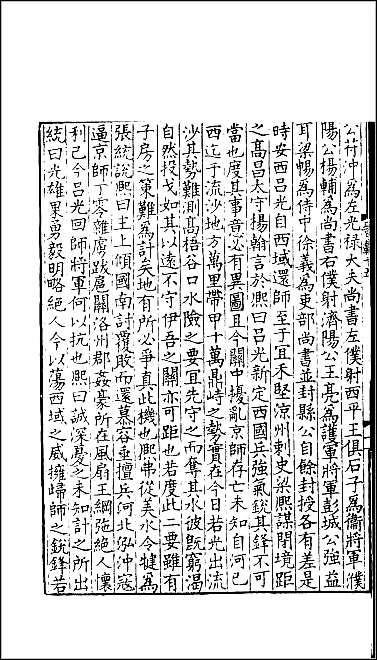 公苻沖為左光祿大夫尚書左僕射西平王俱石子為衛將軍濮
陽公楊輔為尚書右僕射濟陽公王亮為護軍將軍彭城公強益
耳梁暢為侍中徐義為吏部尚書並封縣公自餘封授各有差是
時安西呂光自西域還師至于宜禾堅涼州刺史梁熙謀閉境距
之高昌太守楊翰言於熙曰呂光新定西國兵強氣銳其鋒不可
當也度其事意必有異圖且今關中擾亂京師存亡未知自河已
西迄于流沙地方萬里帶甲十萬鼎峙之勢實在今日若光出流
沙其勢難測高梧谷口水險之要宜先守之而奪其水彼既窮渴
自然投戈如其以遠不守伊吾之關亦可距也若度此二要雖有
子房之策難為計矣地有所必爭真此機也熙弗從美水令犍為
張統說熙曰主上傾國南討覆敗而還慕容垂擅兵河北泓沖寇
逼京師丁零雜虜跋扈關洛州郡姦豪所在風扇王綱弛絕人懷
利己今呂光回師將軍何以抗也熙曰誠深憂之未知計之所出
統曰光雄果勇毅明略絕人今以蕩西域之威擁歸師之銳鋒若